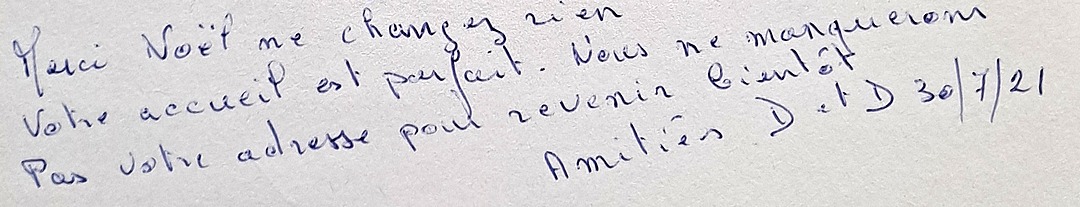 Merci Noël ne changez rien
Votre accueil est parfait. Nous ne manquerons
Pas votre adresse pour revenir bientôt
Amitiés D et D 30/7/21